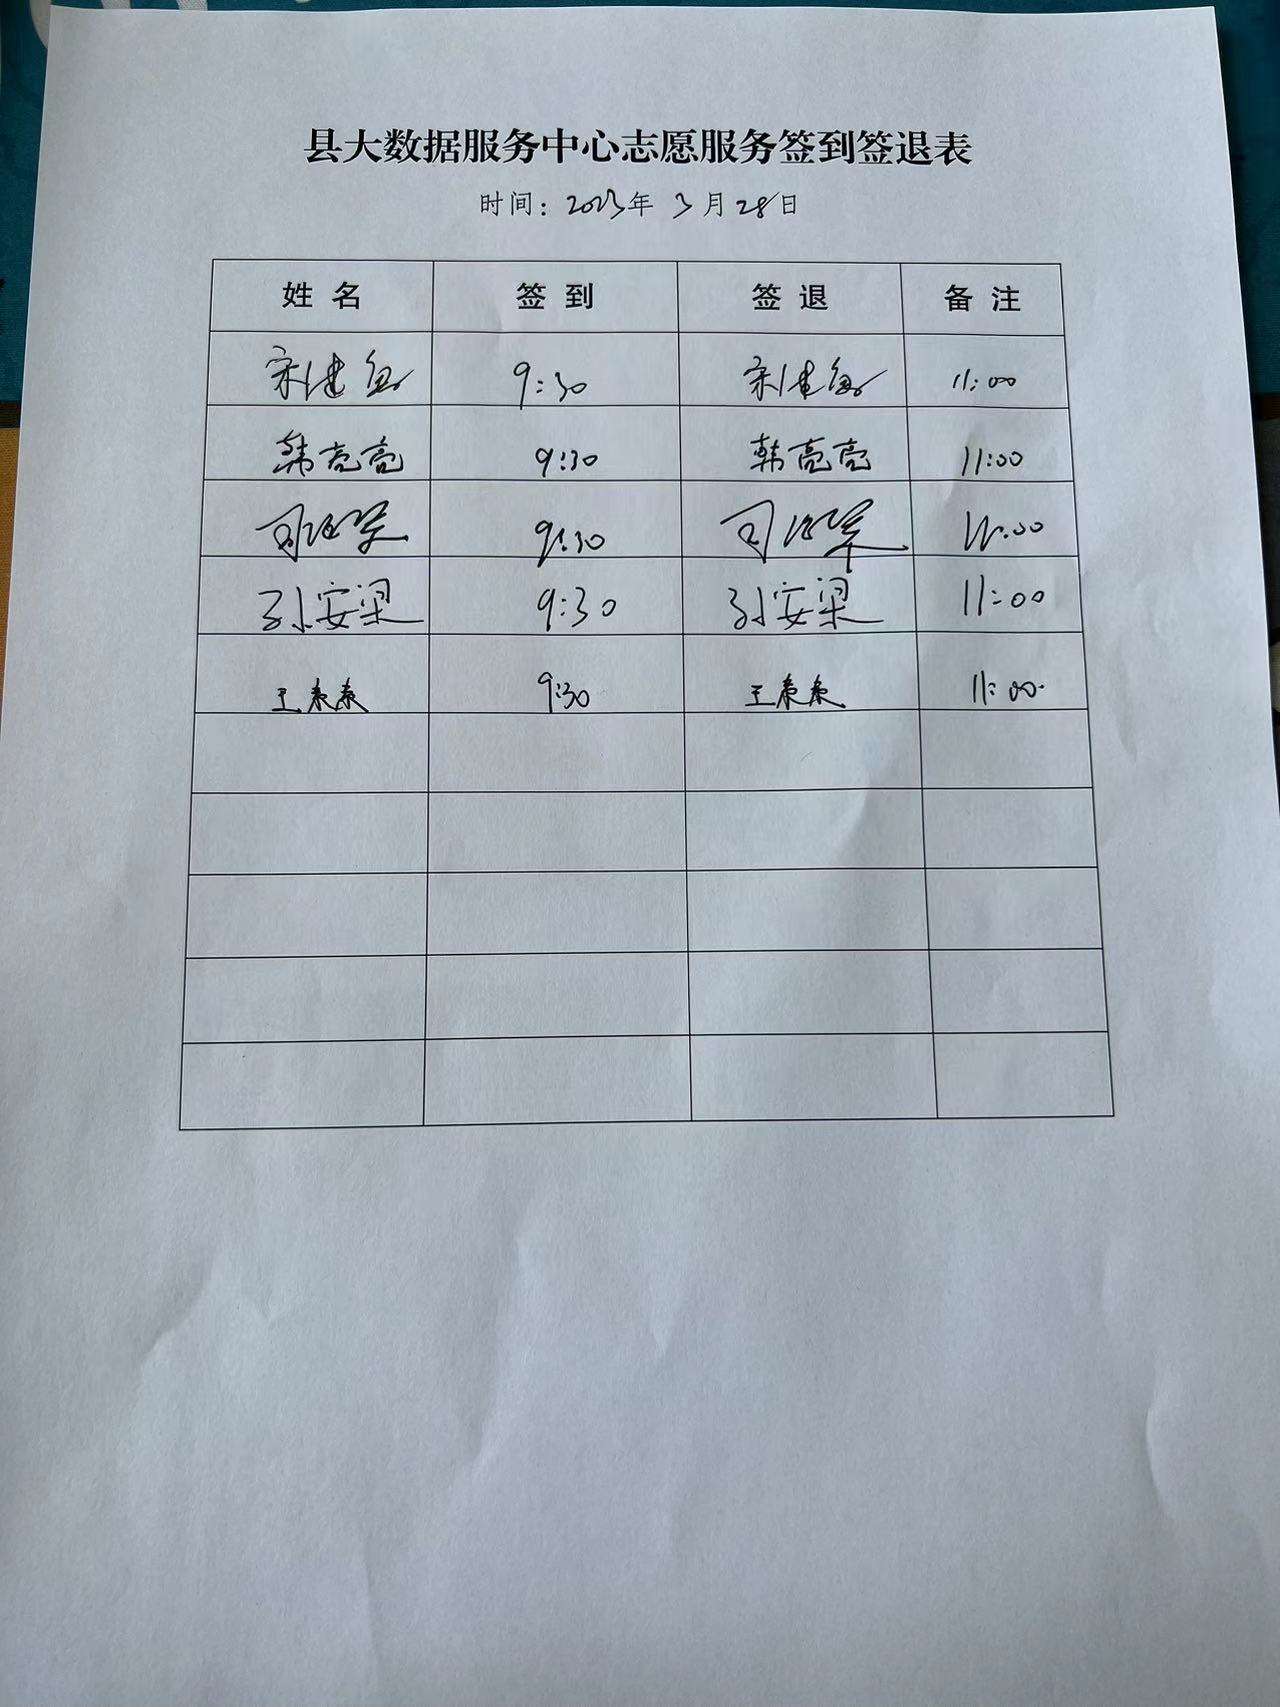 县大数据服务中心志愿服务签到签退表
时间：2023年 3月28日
姓名 签到 签退 备注
9:30 11:00
韩亮亮 9:30 韩亮亮 11:00
9:30 11:00
孙安梁 9:30 孙安梁 11:00
王 9:30 王 11:00